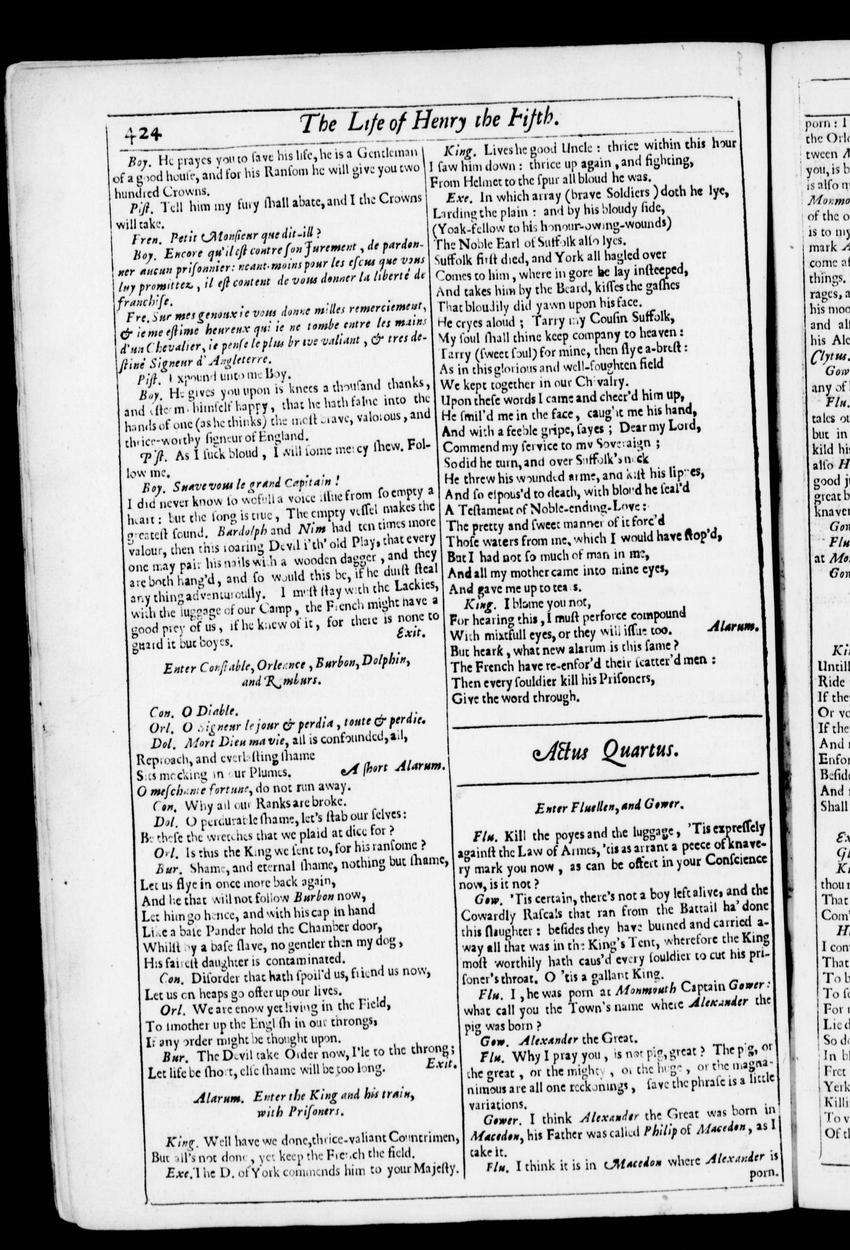 424
The Life of Henry the Fifth.
Boy. He prayes you to save his life, he is a Gentleman
of a good house, and for his Ransom he will give you two
hundred Crowns.
Pist. Tell him my fury shall abate, and I the Crowns
will take.
Fren. Petit Monsieur que dit-ill?
Boy. Encore qu'il est contre son Jurement, de pardon-
ner aucun prisonnier: neant-moins pour les escus que vous
luy promittez, il est content de vous donner la liberté de
franchise.
Fre. Sur mes genoux ie vous donne milles remerciement,
& ie me estime heureux qui ie ne tombe entre les mains
d'un Chevalier, ie pense le plus brave valiant, & tres de-
stiné Signeur d' Angleterre.
Pist. Expound unto me Boy.
Boy. He gives you upon is knees a thousand thanks,
and esteems himself happy, that he hath falne into the
hands of one (as he thinks) the most brave, valorous, and
thrice-worthy signeur of England.
Pist. As I suck bloud, I will some mercy shew. Fol-
low me.
Boy. Suave vous le grand Capitain!
I did never know so wofull a voice issue from so empty a
heart: but the song is true, The empty vessel makes the
greatest sound. Bardolph and Nim had ten times more
valour, then this roaring Devil i'th' old Play, that every
one may pair his nails with a wooden dagger, and they
are both hang'd, and so would this be, if he durst steal
any thing adventurously. I must stay with the Lackies,
with the luggage of our Camp, the French might have a
good prey of us, if he knew of it, for there is none to
guard it but boyes. Exit.
Enter Constable, Orleance, Burbon, Dolphin,
and Ramburs.
Con. O Diable.
Orl. O Signeur le jour & perdia, toute & perdie.
Dol. Mort Dieu ma vie, all is confounded, all,
Reproach, and everlasting shame
Sits mocking in our Plumes. A short Alarum.
O meschante fortune, do not run away.
Con. Why all our Ranks are broke.
Dol. O perdurable shame, let's stab our selves:
Be these the wretches that we plaid at dice for?
Orl. Is this the King we sent to, for his ransome?
Bur. Shame, and eternal shame, nothing but shame,
Let us flye in once more back again,
And he that will not follow Burbon now,
Let him go hence, and with his cap in hand
Like a base Pander hold the Chamber door,
Whilst by a base slave, no gentler then my dog,
His fairest daughter is contaminated.
Con. Disorder that hath spoil'd us, friend us now,
Let us on heaps go offer up our lives.
Orl. We are enow yet living in the Field,
To smother up the English in our throngs,
If any order might be thought upon.
Bur. The Devil take Order now, I'le to the throng;
Let life be short, else shame will be too long. Exit.
Alarum. Enter the King and his train,
with Prisoners.
King. Well have we done, thrice-valiant Countrimen,
But all's not done, yet keep the French the field.
Exe. The D. of York commends him to your Majesty.
King. Lives he good Uncle: thrice within this hour
I saw him down: thrice up again, and fighting,
From Helmet to the spur all bloud he was.
Exe. In which array (brave Soldiers) doth he lye,
Larding the plain: and by his bloudy side,
(Yoak-fellow to his honour-owing-wounds)
The Noble Earl of Suffolk also lyes.
Suffolk first died, and York all hagled over
Comes to him, where in gore he lay insteeped,
And takes him by the Beard, kisses the gashes
That bloudily did yawn upon his face.
He cryes aloud; Tarry my Cousin Suffolk,
My soul shall thine keep company to heaven:
Tarry (sweet soul) for mine, then flye a-brest:
As in this glorious and well-foughten field
We kept together in our Chivalry.
Upon these words I came and cheer'd him up,
He smil'd me in the face, caught me his hand,
And with a feeble gripe, sayes; Dear my Lord,
Commend my service to my Soveraign;
So did he turn, and over Suffolk's neck
He threw his wounded arme, and kist his lippes,
And so espous'd to death, with bloud he seal'd
A Testament of Noble-ending-Love:
The pretty and sweet manner of it forc'd
Those waters from me, which I would have stop'd,
But I had not so much of man in me,
And all my mother came into mine eyes,
And gave me up to tears.
King. I blame you not,
For hearing this, I must perforce compound
With mixtfull eyes, or they will issue too. Alarum.
But heark, what new alarum is this same?
The French have re-enfor'd their scatter'd men:
Then every souldier kill his Prisoners,
Give the word through.
Actus Quartus.
Enter Fluellen, and Gower.
Flu. Kill the poyes and the luggage, 'Tis expressely
against the Law of Armes, 'tis as arrant a peece of knave-
ry mark you now, as can be offert in your Conscience
now, is it not?
Gow. 'Tis certain, there's not a boy left alive, and the
Cowardly Rascals that ran from the Battail ha' done
this slaughter: besides they have burned and carried a-
way all that was in the King's Tent, wherefore the King
most worthily hath caus'd every souldier to cut his pri-
soner's throat. O 'tis a gallant King.
Flu. I, he was porn at Monmouth Captain Gower:
what call you the Town's name where Alexander the
pig was born?
Gow. Alexander the Great.
Flu. Why I pray you, is not pig, great? The pig, or
the great, or the mighty, or the huge, or the magna-
nimous are all one reckonings, save the phrase is a little
variations.
Gower. I think Alexander the Great was born in
Macedon, his Father was called Philip of Macedon, as I
take it.
Flu. I think it is in Macedon where Alexander is
porn.